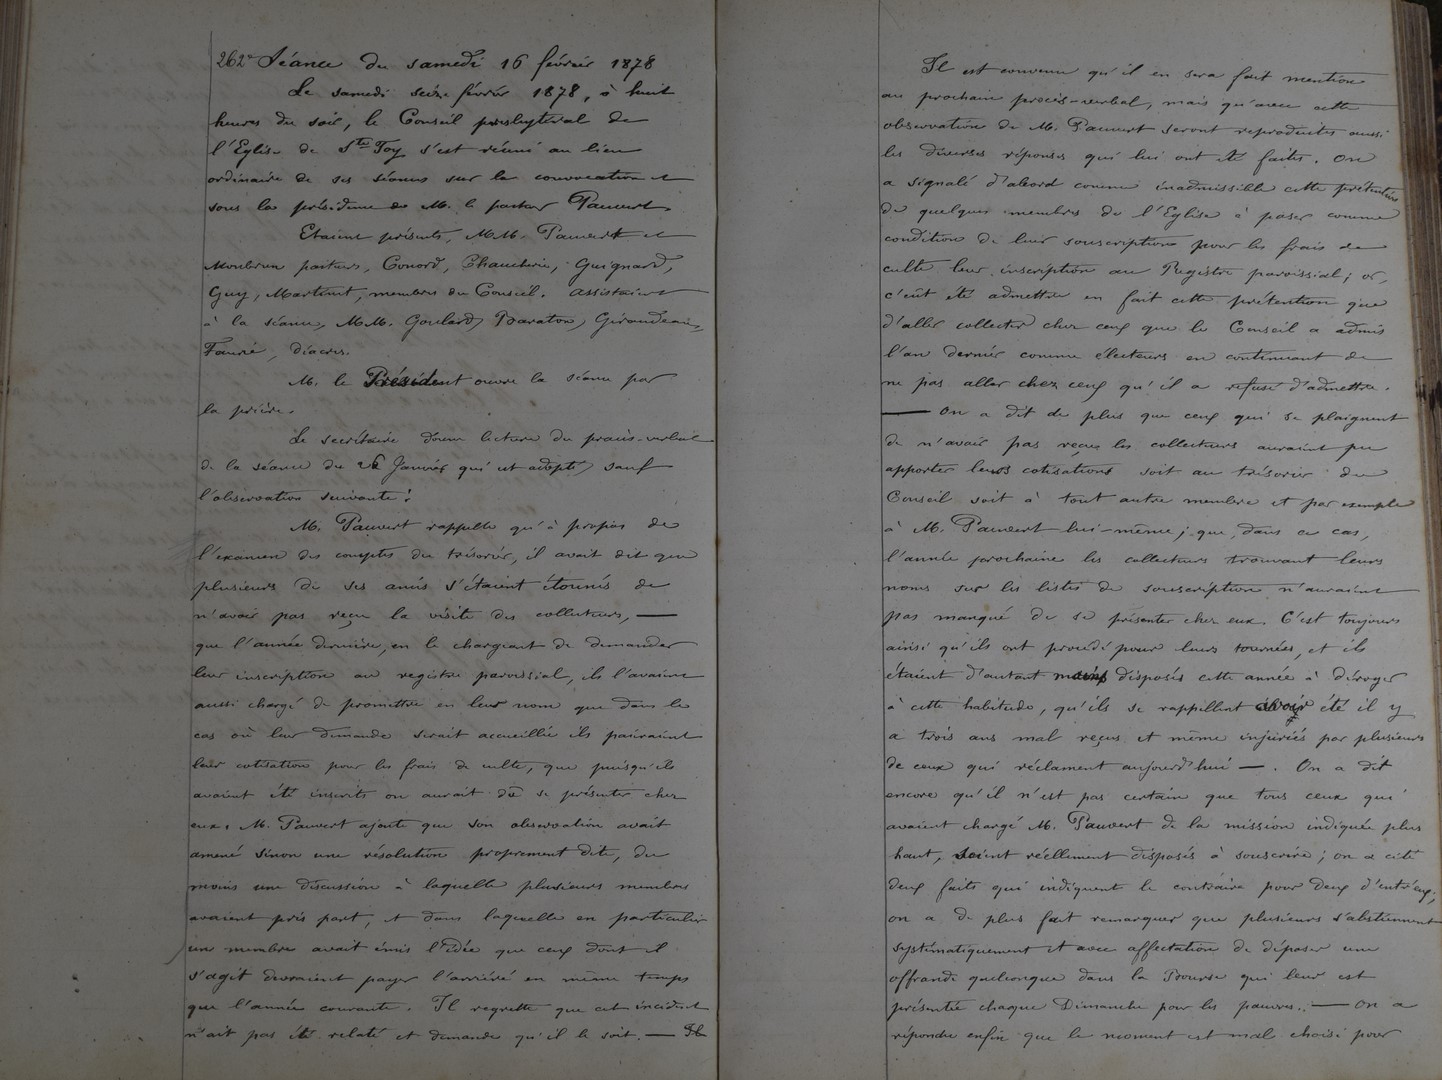 262e Séance du samedi 16 février 1878
Le samedi seize février 1878, à huit
heures du soir, le Conseil presbytéral de
l'Eglise de Ste Foy s'est réuni au lieu
ordinaire de ses séances sur la convocation et
sous la présidence de M. le pasteur Pauvert.
Etaient présents, M.M. Pauvert et
Monbrun pasteurs, Conord, Chaucherie, Guignard,
Guy, Martinet, membres du Conseil. Assistaient
à la séance, M.M. Goulard, Baraton, Giraudeau,
Fauré, diacres.
M. le Président ouvre la séance par
la prière.
Le secrétaire donne lecture du procès-verbal
de la séance du 26 Janvier qui est adopté, sauf
l'observation suivante :
M. Pauvert rappelle qu'à propos de
l'examen des comptes du trésorier, il avait dit que
plusieurs de ses amis s'étaient étonnés de
n'avoir pas reçu la visite des collecteurs, —
que l'année dernière, en le chargeant de demander
leur inscription au registre paroissial, ils l'avaient
aussi chargé de promettre en leur nom que dans le
cas où leur demande serait accueillie ils paieraient
leur cotisation pour les frais de culte, que puisqu'ils
avaient été inscrits on aurait dû se présenter chez
eux. M. Pauvert ajoute que son observation avait
amené sinon une résolution proprement dite, du
moins une discussion à laquelle plusieurs membres
avaient pris part, et dans laquelle en particulier
un membre avait émis l'idée que ceux dont il
s'agit devraient payer l'arriéré en même temps
que l'année courante. Il regrette que cet incident
n'ait pas été relaté et demande qu'il le soit. —
Il est convenu qu'il en sera fait mention
au prochain procès-verbal, mais qu'avec cette
observation de M. Pauvert seront reproduites aussi
les diverses réponses qui lui ont été faites. On
a signalé d'abord comme inadmissible cette prétention
de quelques membres de l'Eglise à poser comme
condition de leur souscription pour les frais de
culte leur inscription au Registre paroissial ; or,
c'eût été admettre en fait cette prétention que
d'aller collecter chez ceux que le Conseil a admis
l'an dernier comme électeurs en continuant de
ne pas aller chez ceux qu'il a refusé d'admettre.
— On a dit de plus que ceux qui se plaignent
de n'avoir pas reçu les collecteurs auraient pu
apporter leurs cotisations soit au trésorier du
Conseil soit à tout autre membre et par exemple
à M. Pauvert lui-même ; que, dans ce cas,
l'année prochaine les collecteurs trouvant leurs
noms sur les listes de souscription n'auraient
pas manqué de se présenter chez eux. C'est toujours
ainsi qu'ils ont procédé pour leurs tournées, et ils
étaient d'autant moins disposés cette année à déroger
à cette habitude, qu'ils se rappellent avoir été il y
a trois ans mal reçus et même injuriés par plusieurs
de ceux qui réclament aujourd'hui —. On a dit
encore qu'il n'est pas certain que tous ceux qui
avaient chargé M. Pauvert de la mission indiquée plus
haut, soient réellement disposés à souscrire ; on a cité
deux faits qui indiquent le contraire pour deux d'entr'eux ;
on a de plus fait remarquer que plusieurs s'abstiennent
systématiquement et avec affectation de déposer une
offrande quelconque dans la Bourse qui leur est
présentée chaque Dimanche pour les pauvres. — On a
répondu enfin que le moment est mal choisi pour